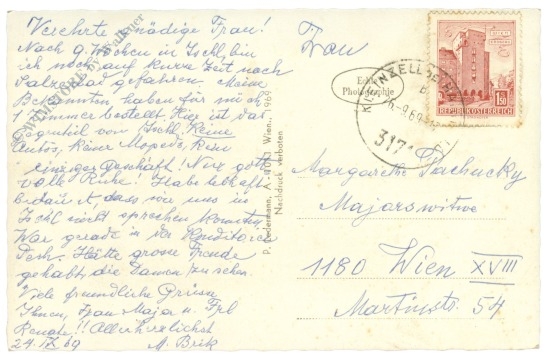 Verehrte gnädige Frau!
Nach 9 Wochen in Ischl, bin
ich noch auf kurze Zeit nach
Salzstad gefahren. Meine
Bekannten haben für mich
1 Zimmer bestellt. Hier ist das
Gegenteil vom Ischl. Keine
Autos, keine Mopeds, kein
einziges Geschäft! Nur
volle Ruhe! Habe lebhaft
bedauert, dass wir uns in
Ischl nicht sprechen konnten.
War gerade in der Konditorei
Hätte grosse Freude
gehabt die Damen zu sehen.
Viele freundliche Grüsse
Ihnen, Frau Major u. Frl
Renate!! Allerherzlichst
24.IX.69 M. Brik
Echte
Photographie
P. Ledermann, A-1013 Wien, 1969
Nachdruck verboten
1.50
REPUBLIK ÖSTERREICH
317
Frau
Margarethe Tachucky
Majorswitwe
1180 Wien XVIII
Martinstr. 54